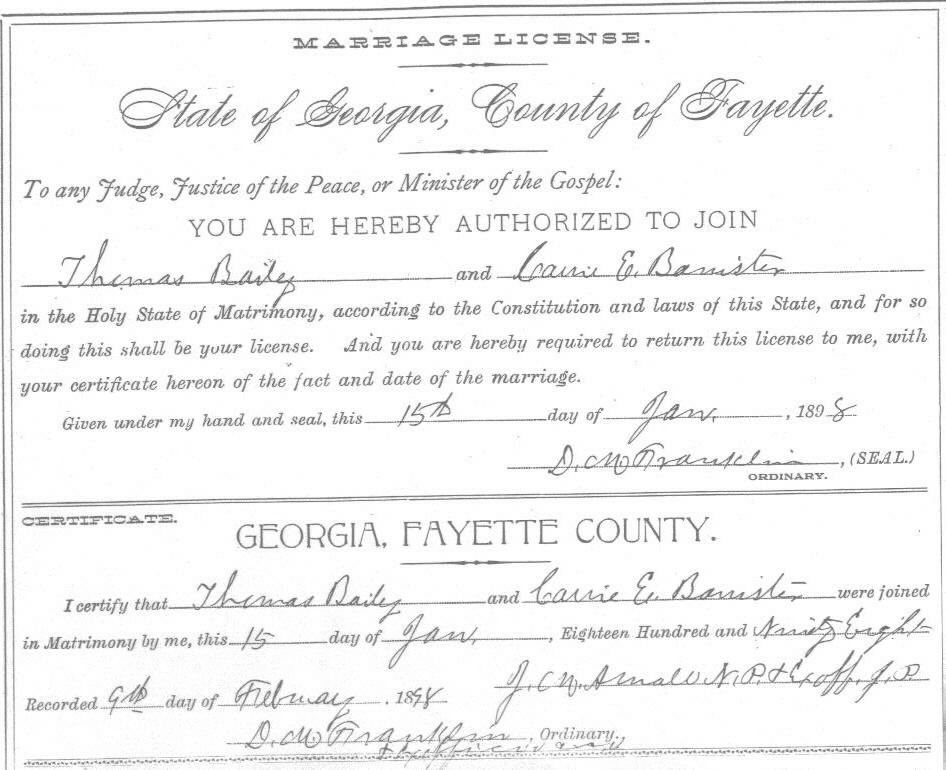 MARRIAGE LICENSE.
State of Georgia, County of Fayette.
To any Judge, Justice of the Peace, or Minister of the Gospel:
YOU ARE HEREBY AUTHORIZED TO JOIN
Thomas Bailey and Carrie E. Bannister
in the Holy State of Matrimony, according to the Constitution and laws of this State, and for so
doing this shall be your license. And you are hereby required to return this license to me, with
your certificate hereon of the fact and date of the marriage.
Given under my hand and seal, this 15th day of Jan. , 1898
D. M Franklin , (SEAL.)
ORDINARY.
CERTIFICATE.
GEORGIA, FAYETTE COUNTY.
I certify that Thomas Bailey and Carrie E. Bannister were joined
in Matrimony by me, this 15 day of Jan. , Eighteen Hundred and Ninety Eight
J. C. N. P. & Exoff. J. P.
Recorded 9th day of February . 1898
D. M Franklin , Ordinary.,